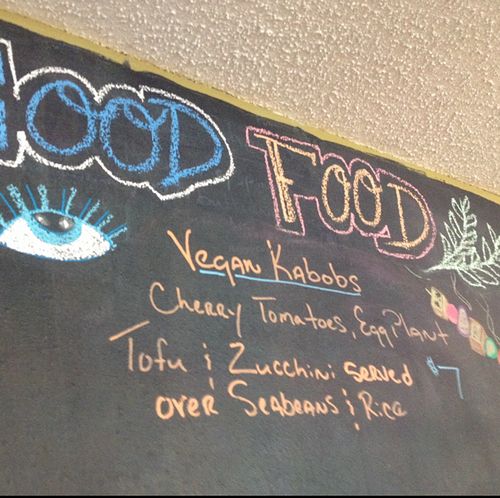 GOOD FOOD
Vegan Kabobs
Cherry Tomatoes, Egg Plant
Tofu & Zucchini served $7
over Seabeans & Rice